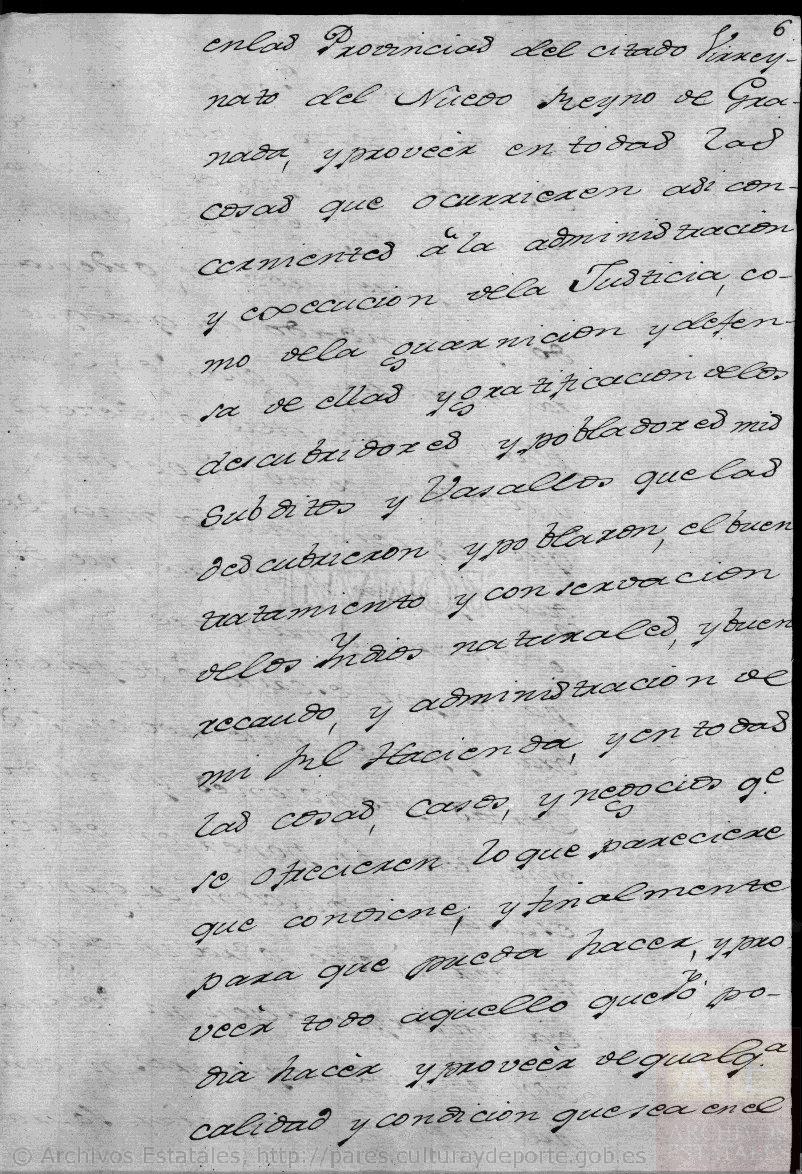 6
en las Provincias del citado Virrey-
nato del Nuebo Reyno de Gra-
nada, y proveèr en todas las
cosas que ocurrieren asi con-
cernientes â la administracion
y execucion de la Justicia, co-
mo de la guarnicion y defen-
sa de ellas y gratificacion de los
descubridores y pobladores mis
Subditos y Vasallos que las
descubrieron y poblaron, el buen
tratamiento y conservacion
de los Yndios naturales, y buen
recaudo, y administracion de
mi Rl Hacienda, y en todas
las cosas, casos, y negocios q.e
se ofrecieren lo que pareciere
que conviene, y finalmente
para que pueda hacer, y pro-
veèr todo aquello que Yo po-
dia hacèr y proveèr de qualq.a
calidad y condicion que sea en el
© Archivos Estatales, http://pares.culturaydeporte.gob.es